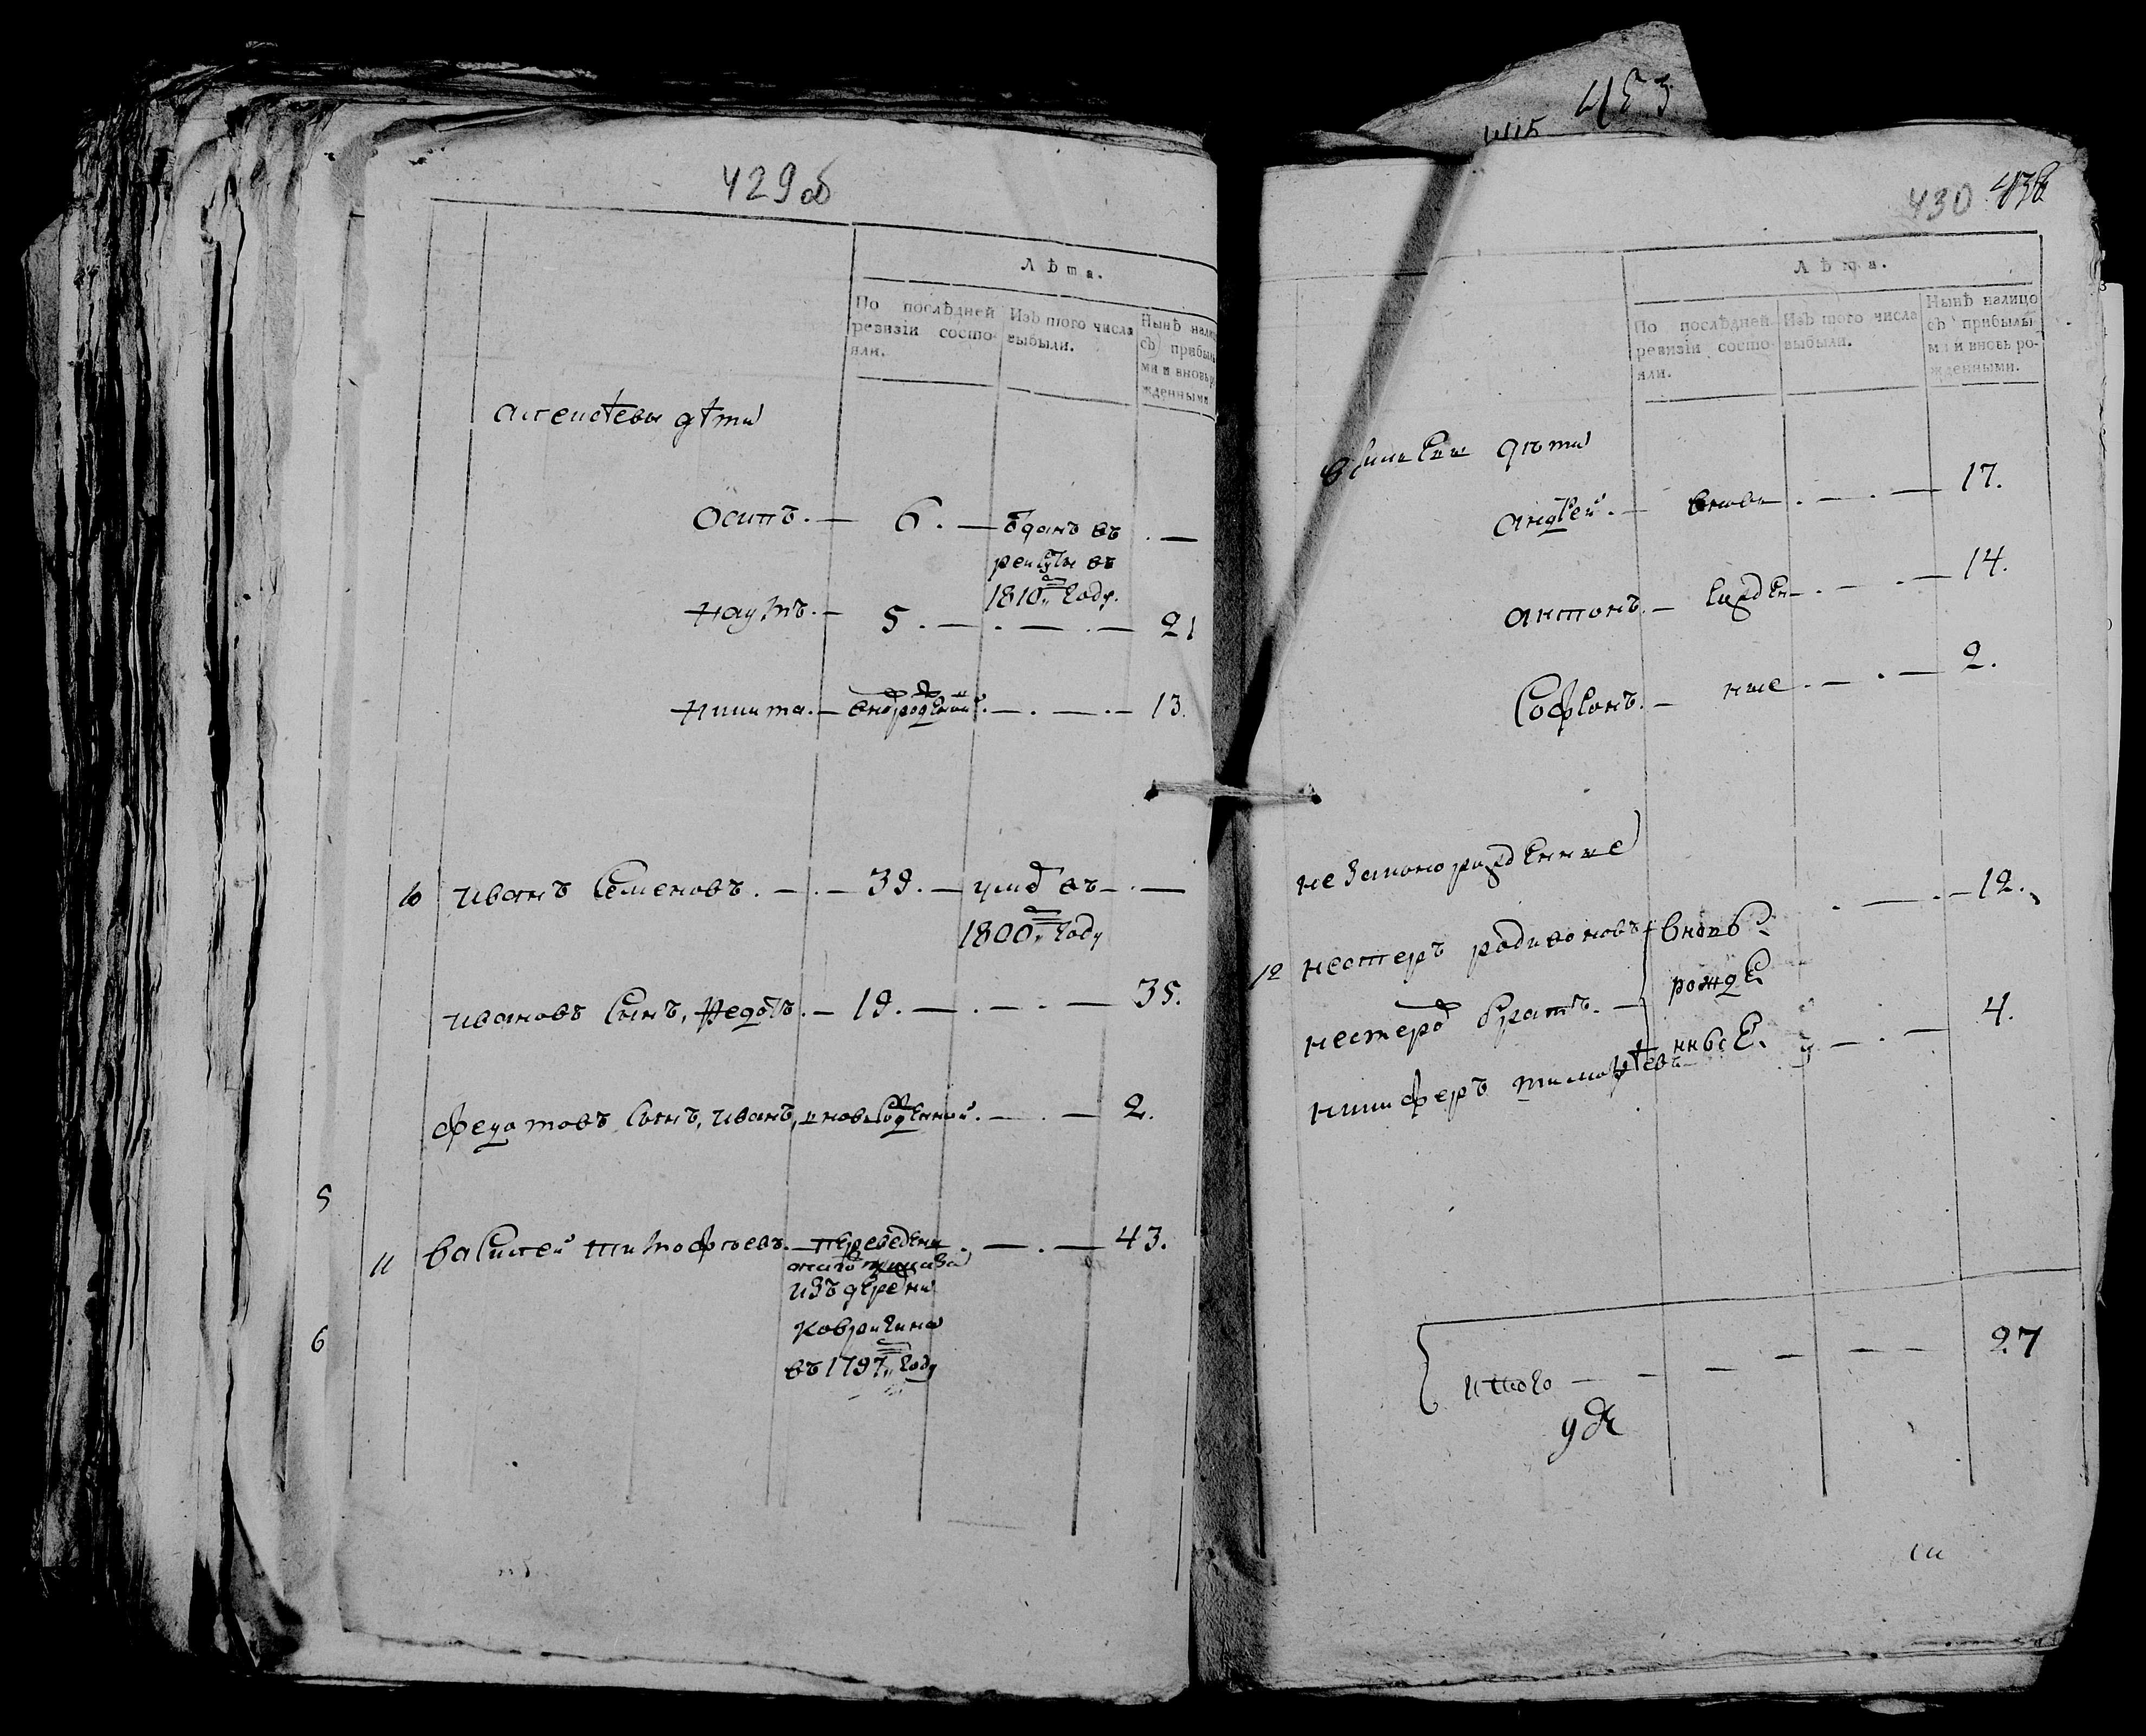 429об
Лѣта.
По послѣдней ревизіи состояли.
Изъ того числа выбыли.
Нынѣ налицо съ прибылыми и вновь рожденными
алексѣевы дѣти
Осипъ. — 6. — отданъ въ . —
рекруты въ
1810м году.
Наумъ. — 5. — . — . — 21
Никита. — вновь рожденный. — . — . — 13.
10 иванъ Семеновъ. — . — 39. — умре въ — . —
1800м году
ивановъ Сынъ, Федотъ. — 19. — . — . — 35.
федотовъ Сынъ, иванъ, вновь рожденной. — . — 2.
5
11 василей тимофѣевъ. — переведенъ . — . — 43.
изъ деревни
6
Ковригина
въ 1797м году
453
430
Лѣта.
По послѣдней ревизіи состояли.
Изъ того числа выбыли.
Нынѣ налицо съ прибылыми и вновь рожденными.
васильевы дѣти
андрей. — вновь . — . — 17.
антонъ. — рожден — . — . — 14.
Софронъ. — ные . — . — 2.
незаконорожденные
12 нестеръ родивоновъ вновь . — . — 12.
нестеров братъ. — рожде
никифоръ тимофѣевъ нные. — . — 4.
итого — — — — — — 27